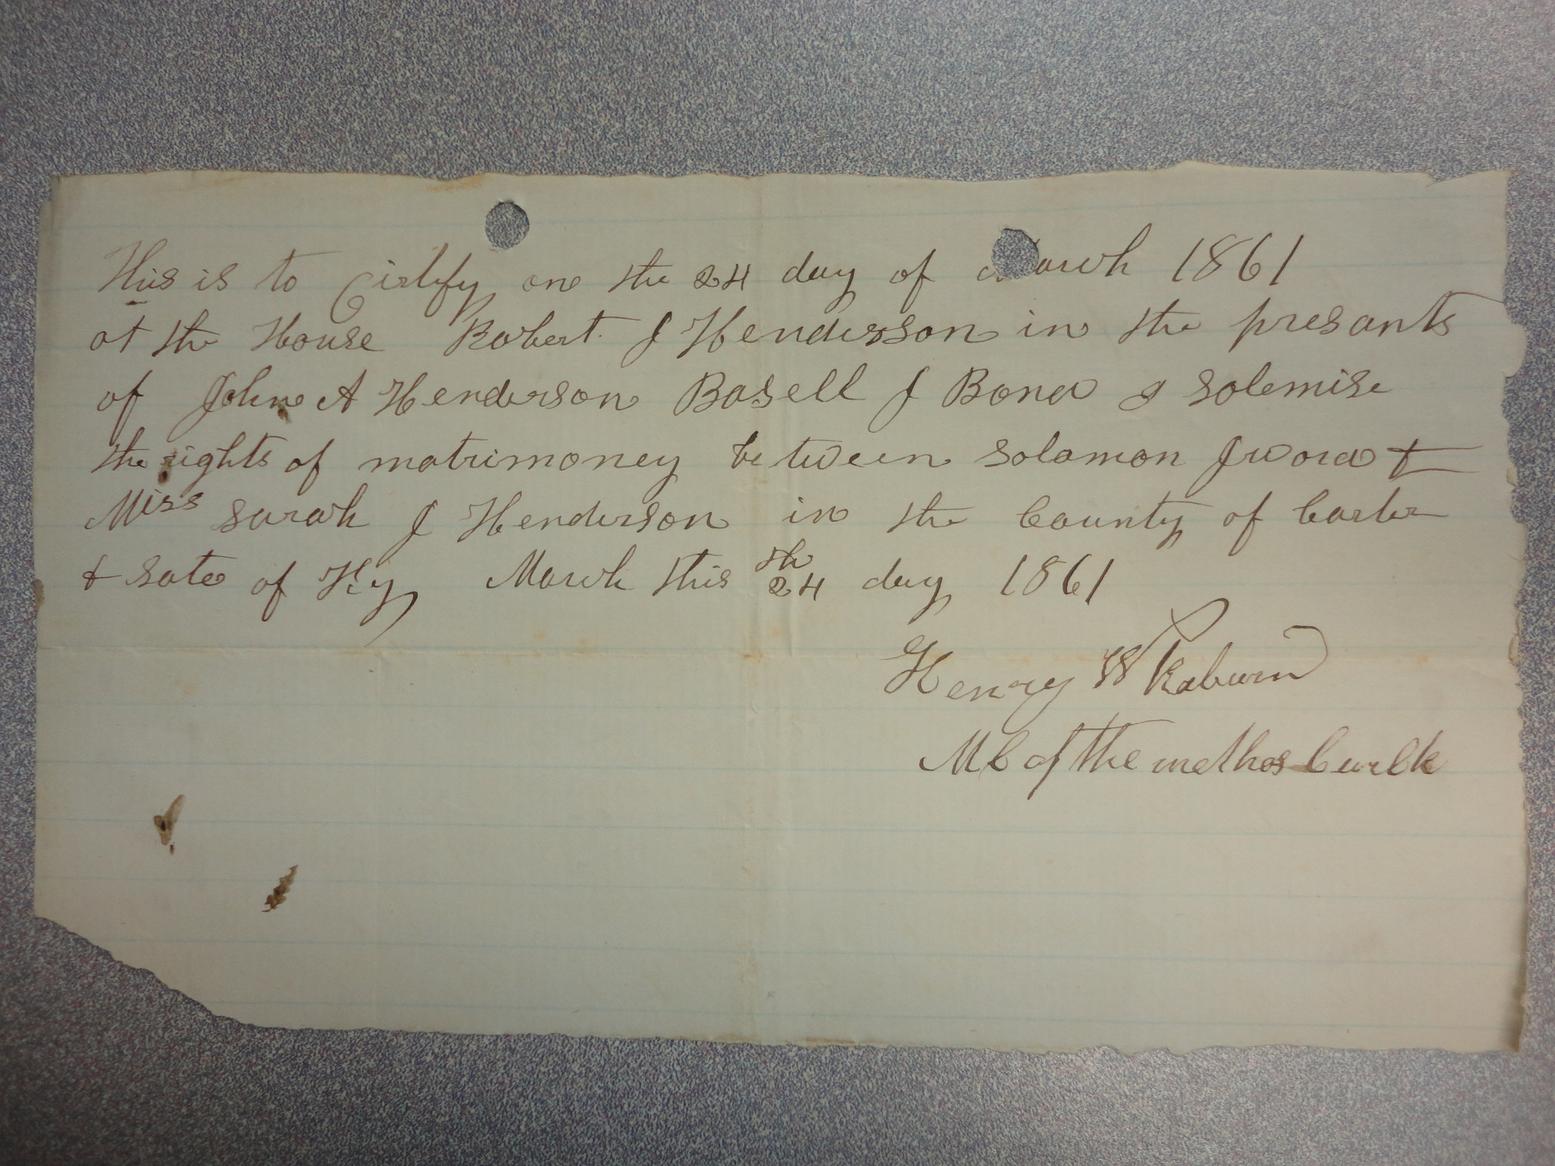 This is to Cirtify one the 24 day of March 1861
at the House Robert J Henderson in the presants
of John A Henderson Basell J Bond I Solemise
the rights of matrimoney between Solamon J
Miss Sarah J Henderson in the County of Carter
& Sate of Ky March this 24th day 1861
Henry W Raburn
MC of the methos